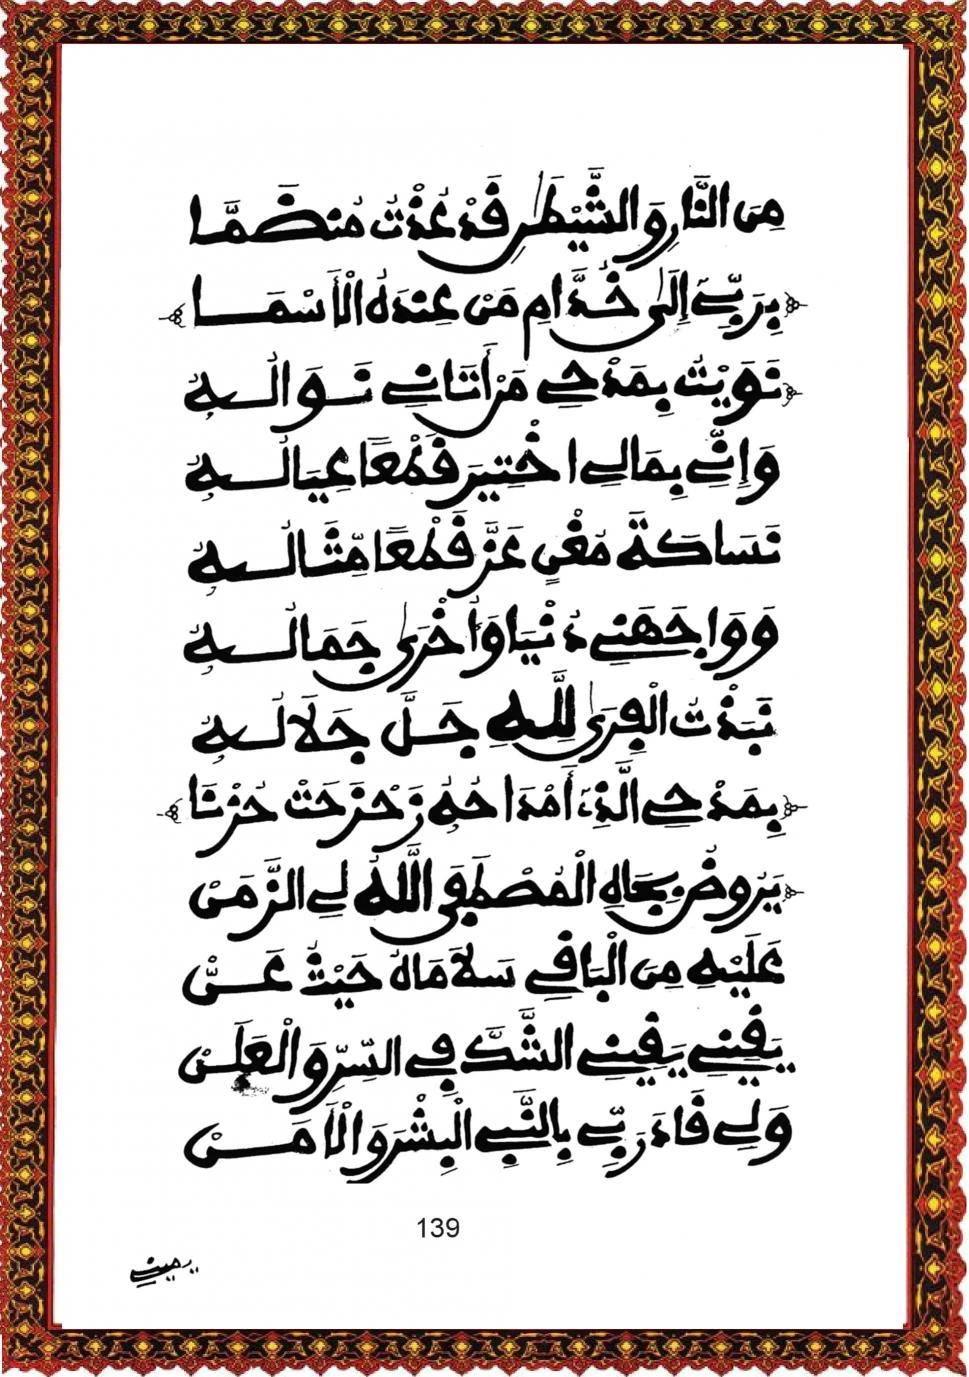 مِنَ النَّارِ وَالشَّيْطٰنِ قَدْ عُذْتُ مُنضَمَّا
بِرَبِّي إِلَىٰ خُدَّامِ مَنْ عِندَهُ الْأَسْمَا
نَوَيْتُ بِمَدْحِي مَنْ أَتَانِي نَوَالُهُ
وَإِنِّي بِمَالِي اخْتِيرَ قَلْعًا عِيَالُهُ
نَسَا كَتْمُغْنٍ عَزَّ قَلْعًا مِّثَالُهُ
وَوَاجَهَنِي دُنْيَا وَأُخْرَىٰ جَمَالُهُ
نَبَذْتُ الْفِرَىٰ لِلّٰهِ جَلَّ جَلَالُهُ
بِمَدْحِي الَّذِي أَمْدَاحُهُ زَحْزَحَتْ حُزْنَا
يَرُوضُ بِجَاهِ الْمُصْطَفَى اللَّهُ لِي الزَّمَنْ
عَلَيْهِ مِنَ الْبَاقِي سَلَامَاهُ حَيْثُ عَنْ
يَقِينِي يَقِينِي الشَّكَّ فِي السِّرِّ وَالْعَلَنْ
وَلِي قَادَ رَبِّي بِالنَّبِي الْبِشْرَ وَالْأَمَنْ
139